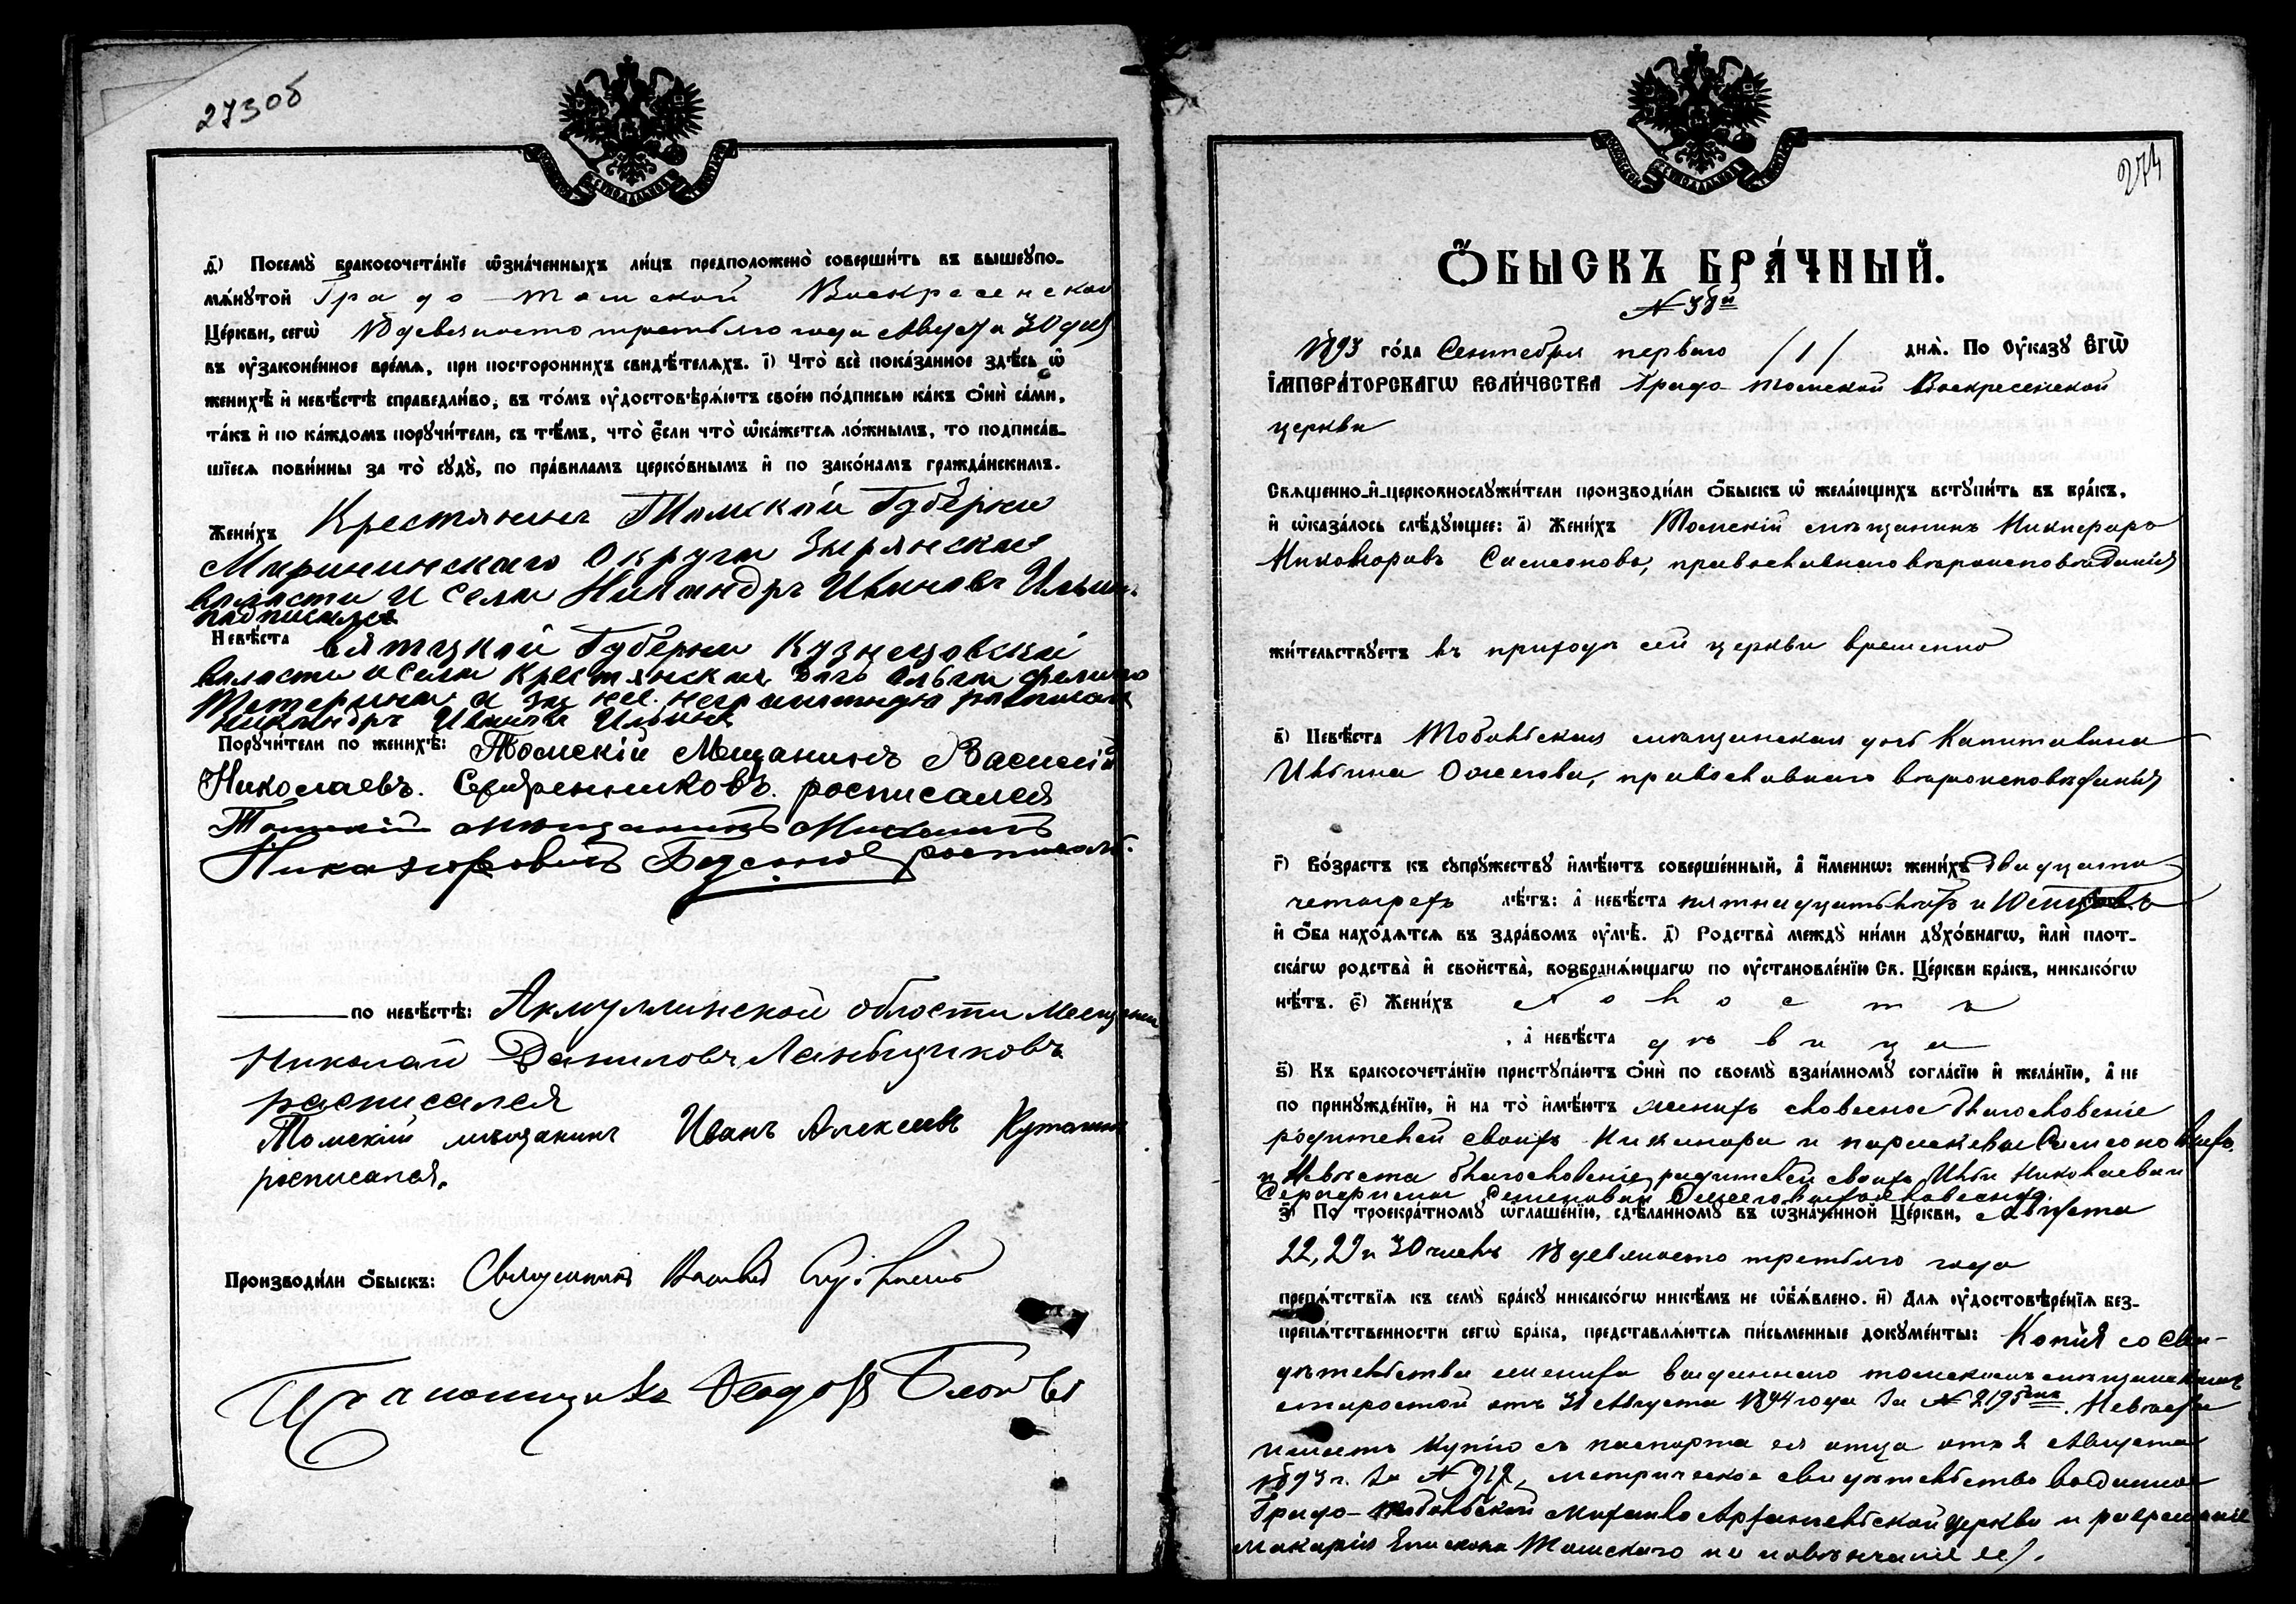 273об
д҃) Посемꙋ̀ бракосочета́нїе ѡ҆зна́ченныхъ ли́цъ предположено̀ соверши́ть въ вышеꙋпо-
мѧ́нꙋтой Градо-томской Воскресенской
Це́ркви, сегѡ̀ 18 девяносто третьяго года Августа 30 дня
въ ᲂу҆законе́нное вре́мѧ, при посторо́ннихъ свидѣ́телѧхъ. і҃) Что̀ всѐ пока́занное здѣ́сь ѡ҆
женихѣ̀ и҆ невѣ́стѣ справедли́во, въ то́мъ ᲂу҆достовѣрѧ́ютъ свое́ю по́дписью ка́къ ѻ҆нѝ са́ми,
та́къ и҆ по ка́ждомъ порꙋчи́тели, съ тѣ́мъ, что̀ є҆́сли что̀ ѡ҆ка́жетсѧ ло́жнымъ, то подписа́в-
шїесѧ пови́нны за то̀ сꙋдꙋ̀, по пра́виламъ церко́внымъ и҆ по зако́намъ гражда́нскимъ.
Жени́хъ Крестянинъ Томской Губерни
Мариинскаго Округа Зырянской
власти и села Никандръ Ивановъ Ильинъ
подписался
Невѣ́ста Вятцкой Губерни Кузнецовской
власти и села крестянская дочь Ольга
Тетерина а за нее неграмотную расписался
Никандръ Иванъ Ильинъ
Порꙋчи́тели по женихѣ̀: Томскій Мещанинъ Василій
Николаевъ. Серебренниковъ. росписался
Томскій мѣщанинъ Михаилъ
Никаноровичъ росписалъ.
по невѣ́стѣ: Акмуллинской области Мещанин
Николай Даниловъ Ланбищиковъ
расписался
Томскій мѣщанинъ Иванъ Алексеевъ
росписался.
Производи́ли ѻ҆́быскъ: Священникъ Василій
Псаломщикъ Ѳеодоръ
274
Ѻ҆́БЫСКЪ БРА́ЧНЫЙ.
№ 36й
1893 го́да Сентября перваго /1/ днѧ̀. По Оу҆ка́зꙋ Є҆ГѠ̀
І҆МПЕРА́ТОРСКАГѠ ВЕЛИ́ЧЕСТВА Градо-Томской Воскресенской
церкви
Свѧще́нно-и҆-церковнослꙋжи́тели производи́ли ѻ҆́быскъ ѡ҆ жела́ющихъ встꙋпи́ть въ бра́къ,
и҆ ѡ҆каза́лось слѣ́дꙋющее: а҃) Жени́хъ Томскій мѣщанинъ Никифоръ
Никаноровъ Самсоновъ, православнаго вѣроисповѣданія
жи́тельствꙋетъ въ приходѣ сей церкви временно
в҃) Невѣ́ста Тобольская мѣщанская дочь Капитолина
Ивлина Ожегова, православнаго вѣроисповѣданія
г҃) Во́зрастъ къ сꙋпрꙋ́жествꙋ и҆мѣ́ютъ соверше́нный, а҆ и҆́меннѡ: жени́хъ двадцати
четырехъ лѣ́тъ: а҆ невѣ́ста пятнадцати лѣтъ и 10 мѣсяцевъ
и҆ ѻ҆́ба нахо́дѧтсѧ въ здра́вомъ ᲂу҆мѣ̀. д҃) Родства̀ междꙋ̀ ни́ми дꙋхо́внагѡ, и҆лѝ плот-
ска́гѡ родства̀ и҆ свойства̀, возбранѧ́ющагѡ по ᲂу҆становле́нїю Св. Це́ркви бра́къ, никако́гѡ
нѣ́тъ. є҃) Жени́хъ холостъ
а҆ невѣ́ста дѣвица
ѕ҃) Къ бракосочета́нїю пристꙋпа́ютъ ѻ҆нѝ по своемꙋ̀ взаи́мномꙋ согла́сїю и҆ жела́нїю, а҆ не
по принꙋжде́нїю, и҆ на то̀ и҆мѣ́ютъ женихъ словесное благословеніе
родителей своихъ Никанора и параскевы Самсоновыхъ,
и Невѣста благословеніе родителей своихъ Ивли Николаева и
Серафимы Семеновой Ожеговыхъ словесное.
з҃) По троекра́тномꙋ ѡ҆глаше́нїю, сдѣ́ланномꙋ въ ѡ҆зна́ченной Це́ркви, Августа
22, 29 и 30 чиселъ 18 девяносто третьяго года
препѧ́тствїѧ къ семꙋ̀ бра́кꙋ никако́гѡ никѣ́мъ не ѡ҆б̾ѧ́влено. и҃) Длѧ ᲂу҆достовѣре́нїѧ без-
препѧ́тственности сегѡ̀ бра́ка, представлѧ́ютсѧ пи́сьменные докꙋме́нты: Копія со сви-
дѣтельства жениха выданнаго томскимъ мѣщанскимъ
старостой отъ 31 Августа 1894 года за № 2195. Невѣста
имѣетъ Копію съ паспорта ея отца отъ 2 Августа
1893 г. за № 912, метрическое свидѣтельство выданное
Градо-тобольской Михаило Архангельской церкви и разрешеніе
Макарія Епископа Томскаго на повѣнчаніе ея.